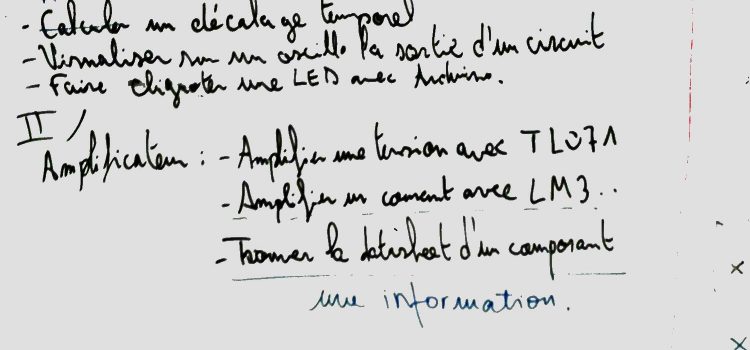 - Calculer un décalage temporel
- Visualiser sur un oscillo la sortie d'un circuit
- Faire clignoter une LED avec Arduino.
II /
Amplificateur : - Amplifier une tension avec TL071
- Amplifier un courant avec LM3..
- Trouver la datasheet d'un composant
une information.